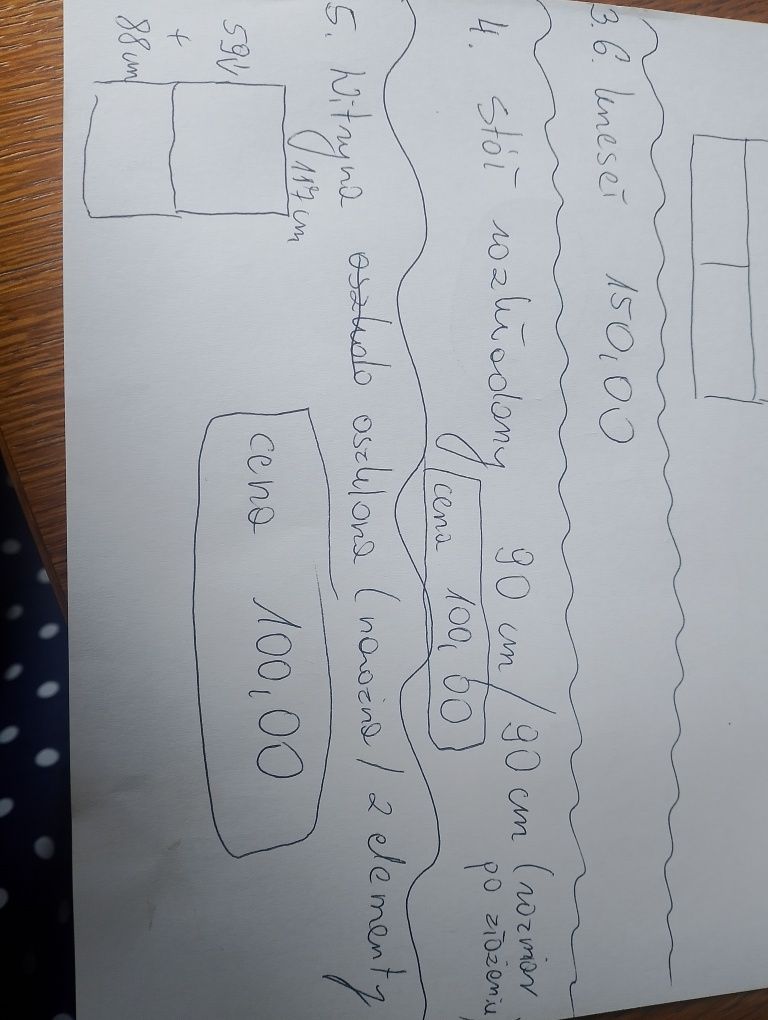 3. 6. krzeseł 150,00
4. stół rozkładany 90 cm / 90 cm (rozmiar
po złożeniu)
cena 100,00
5. Witryna oszkolo oszklona (narożna / 2 elementy
117 cm
+
88 cm
cena 100,00